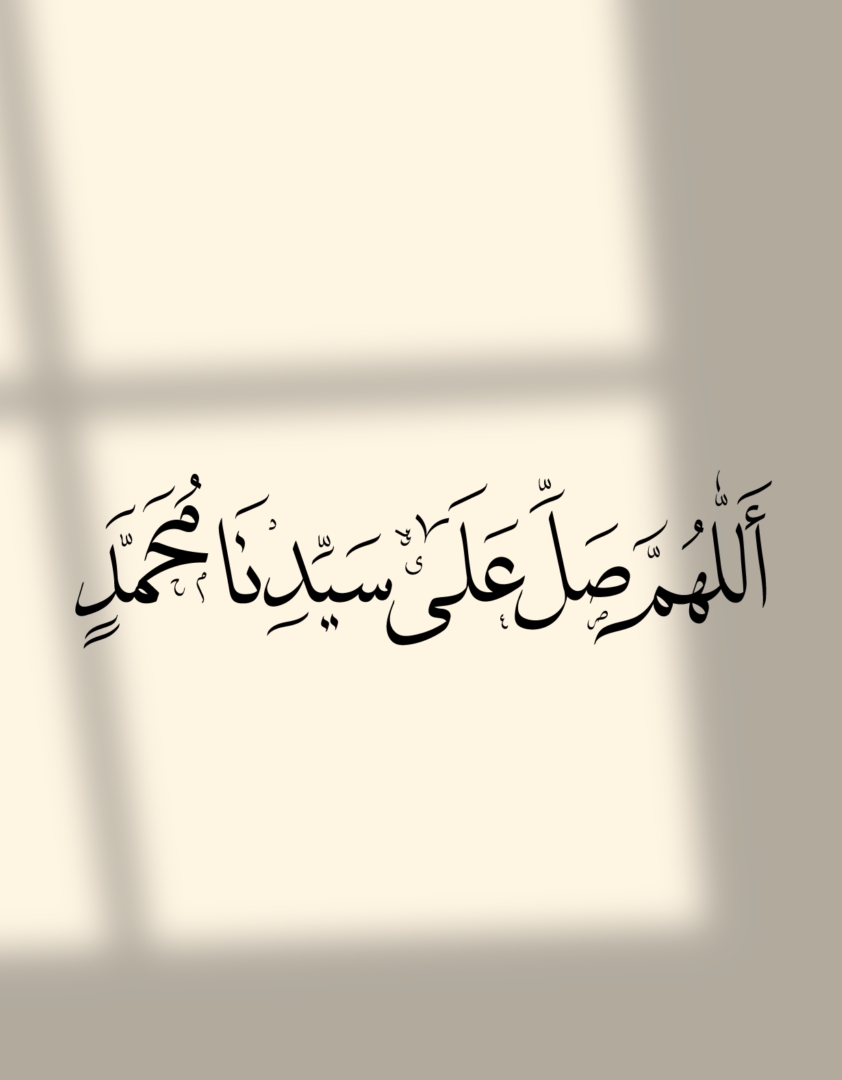 أَللّٰهُمَّ صَلِّ عَلَىٰ سَيِّدِنَا مُحَمَّدٍ